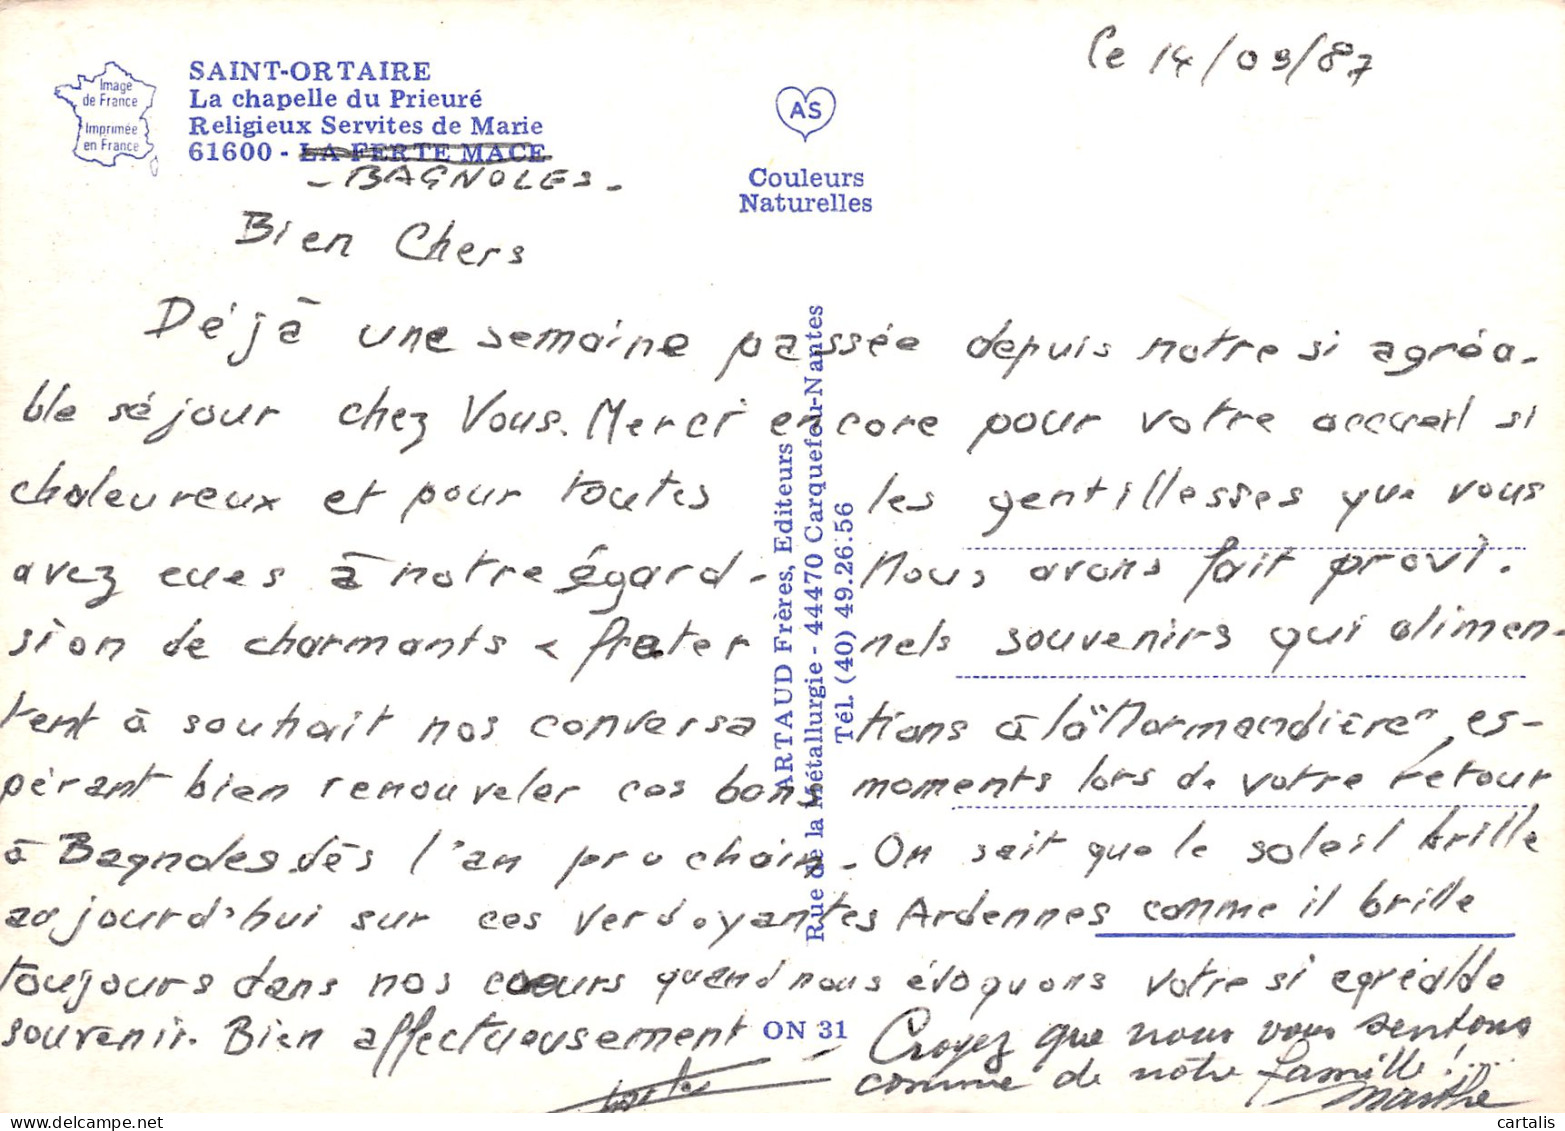 Ce 14/09/87
Image
de France
Imprimée
en France
SAINT-ORTAIRE
La chapelle du Prieuré
Religieux Servites de Marie
61600 - LA FERTE MACE
- BAGNOLES -
AS
Couleurs
Naturelles
Bien Chers
Déjà une semaine passée depuis notre si agréa-
ble séjour chez Vous. Merci encore pour votre accueil si
chaleureux et pour toutes les gentillesses que vous
avez eues à notre égard - Nous avons fait provi-
sion de charmants & fraternels souvenirs qui alimen-
tent à souhait nos conversations à la "Normandière", es-
pérant bien renouveler ces bons moments lors de votre retour
à Bagnoles dès l'an prochain - On sait que le soleil brille
aujourd'hui sur ces verdoyantes Ardennes comme il brille
toujours dans nos coeurs quand nous évoquons votre si agréable
souvenir. Bien affectueusement
Croyez que nous vous sentons
comme de notre famille !...
Marthe
ARTAUD Frères, Editeurs
Rue de la Métallurgie - 44470 Carquefou-Nantes
Tél. (40) 49.26.56
ON 31
cartalis